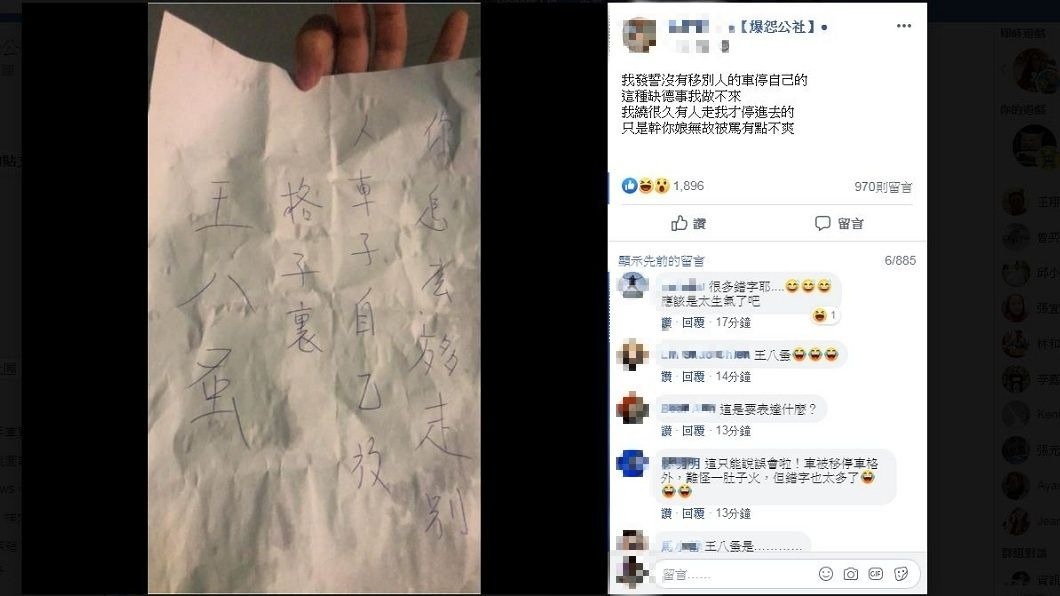 你怎玄夠走別
人車子自己放
格子裏
王八蛋
【爆怨公社】
我發誓沒有移別人的車停自己的
這種缺德事我做不來
我繞很久有人走我才停進去的
只是幹你娘無故被罵有點不爽
1,896
970則留言
讚 留言
顯示先前的留言 6/885
很多錯字耶....
應該是太生氣了吧
1
讚 · 回覆 · 17分鐘
王八蚤
讚 · 回覆 · 14分鐘
這是要表達什麼？
讚 · 回覆 · 13分鐘
這只能說誤會啦！車被移停車格
外，難怪一肚子火，但錯字也太多了
讚 · 回覆 · 13分鐘
王八蚤是…………
留言……